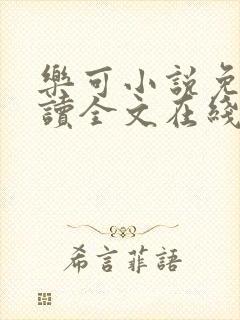 樂可小說免
讀全文在綫
希言菲語